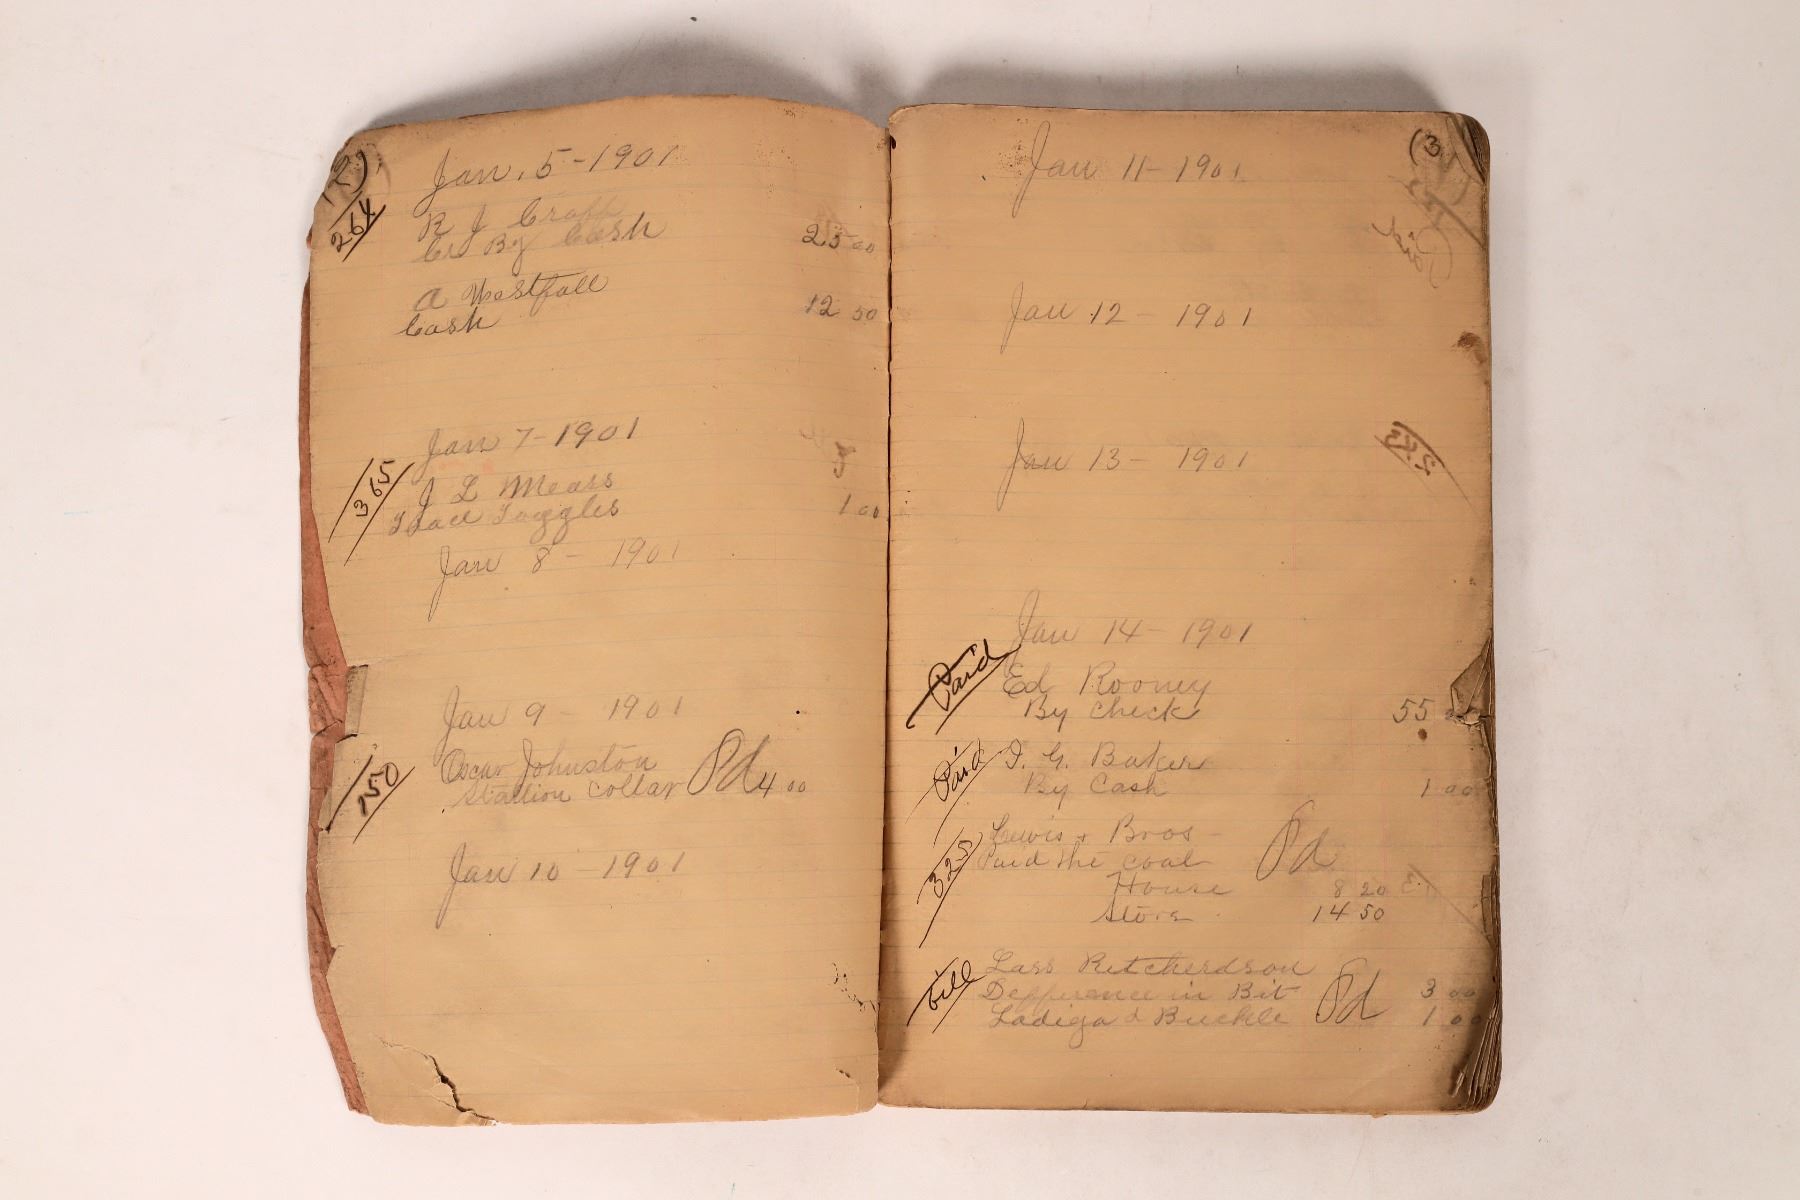 (2)
264
Jan. 5-1901
R J Craff
Cr By Cash 25 00
A Westfall
Cash 12 50
Jan 7-1901
365
J L Mears
Toggles 1 00
Jan 8 - 1901
Jan 9 - 1901
150
Oscar Johnston
Stallion Collar Pd 4 00
Jan 10 - 1901
(3
Jan 11 - 1901
Jan 12 - 1901
Jan 13 - 1901
Jan 14 - 1901
Paid
Ed Rooney
By Check 55 00
Paid
I. G. Baker
By Cash 1 00
325
Lewis & Bros -
Paid the coal Pd
House 8 20
Store 14 50
bill
Lass Retcherdson
Depference in Bit Pd 3 00
Ladiga & Buckle 1 00